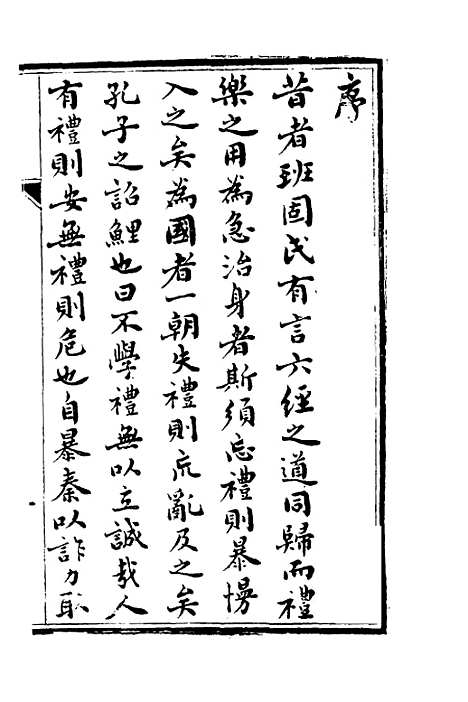 序
昔者班固氏有言六經之道同歸而禮
樂之用為急治身者斯須忘禮則暴慢
入之矣為國者一朝失禮則荒亂及之矣
孔子之詔鯉也曰不學禮無以立誠哉人
有禮則安無禮則危也自暴秦以詐力取